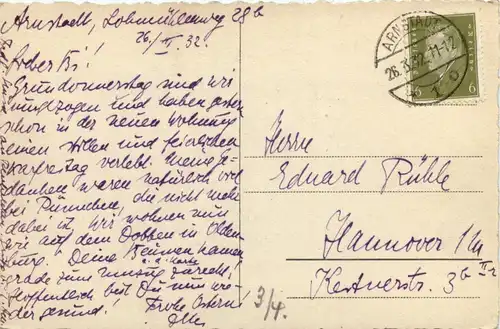 Arnstadt, Lohmühlenweg 28b
26./III. 32.
Lieber Bi!
Gründonnerstag sind wir
umgezogen und haben gestern
schon in der neuen Wohnung
einen stillen und feierlichen
Karfreitag verlebt. Meine Ge-
danken waren natürlich viel
bei die nicht mehr
dabei ist. Wir wohnen nun
wie auf dem Dobben in Olden-
burg. Deine kamen
u. Karte
grade zum Umzug zurecht!
Hoffentlich bist Du nun wie-
der gesund. Frohe Ostern!
ARNSTADT
26.3.32.11-12
6
Herrn
Eduard Rühle
Hannover
Kestnerstr. 3b II
3/4.